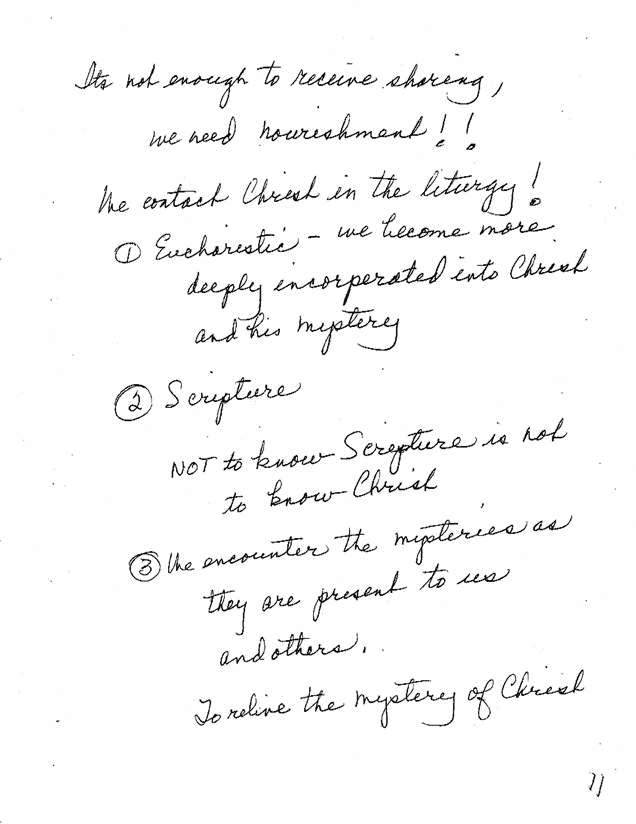 Its not enough to receive sharing,
we need nourishment!!
We contact Christ in the liturgy!
① Eucharistic - we become more
deeply incorperated into Christ
and his mystery
② Scripture
NOT to know Scripture is not
to know Christ
③ We encounter the mysteries as
they are present to us
and others.
To relive the mystery of Christ
11